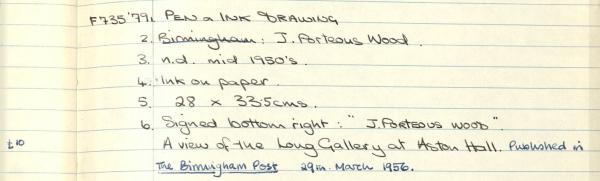 F735'79. 1. PEN & INK DRAWING
2. Birmingham: J. Porteous Wood.
3. n.d. mid 1950's.
4. Ink on paper.
5. 28 x 33.5cms.
6. Signed bottom right: "J. PORTEOUS WOOD".
£10 A view of the Long Gallery at Aston Hall. Published in
The Birmingham Post 29th March 1956.